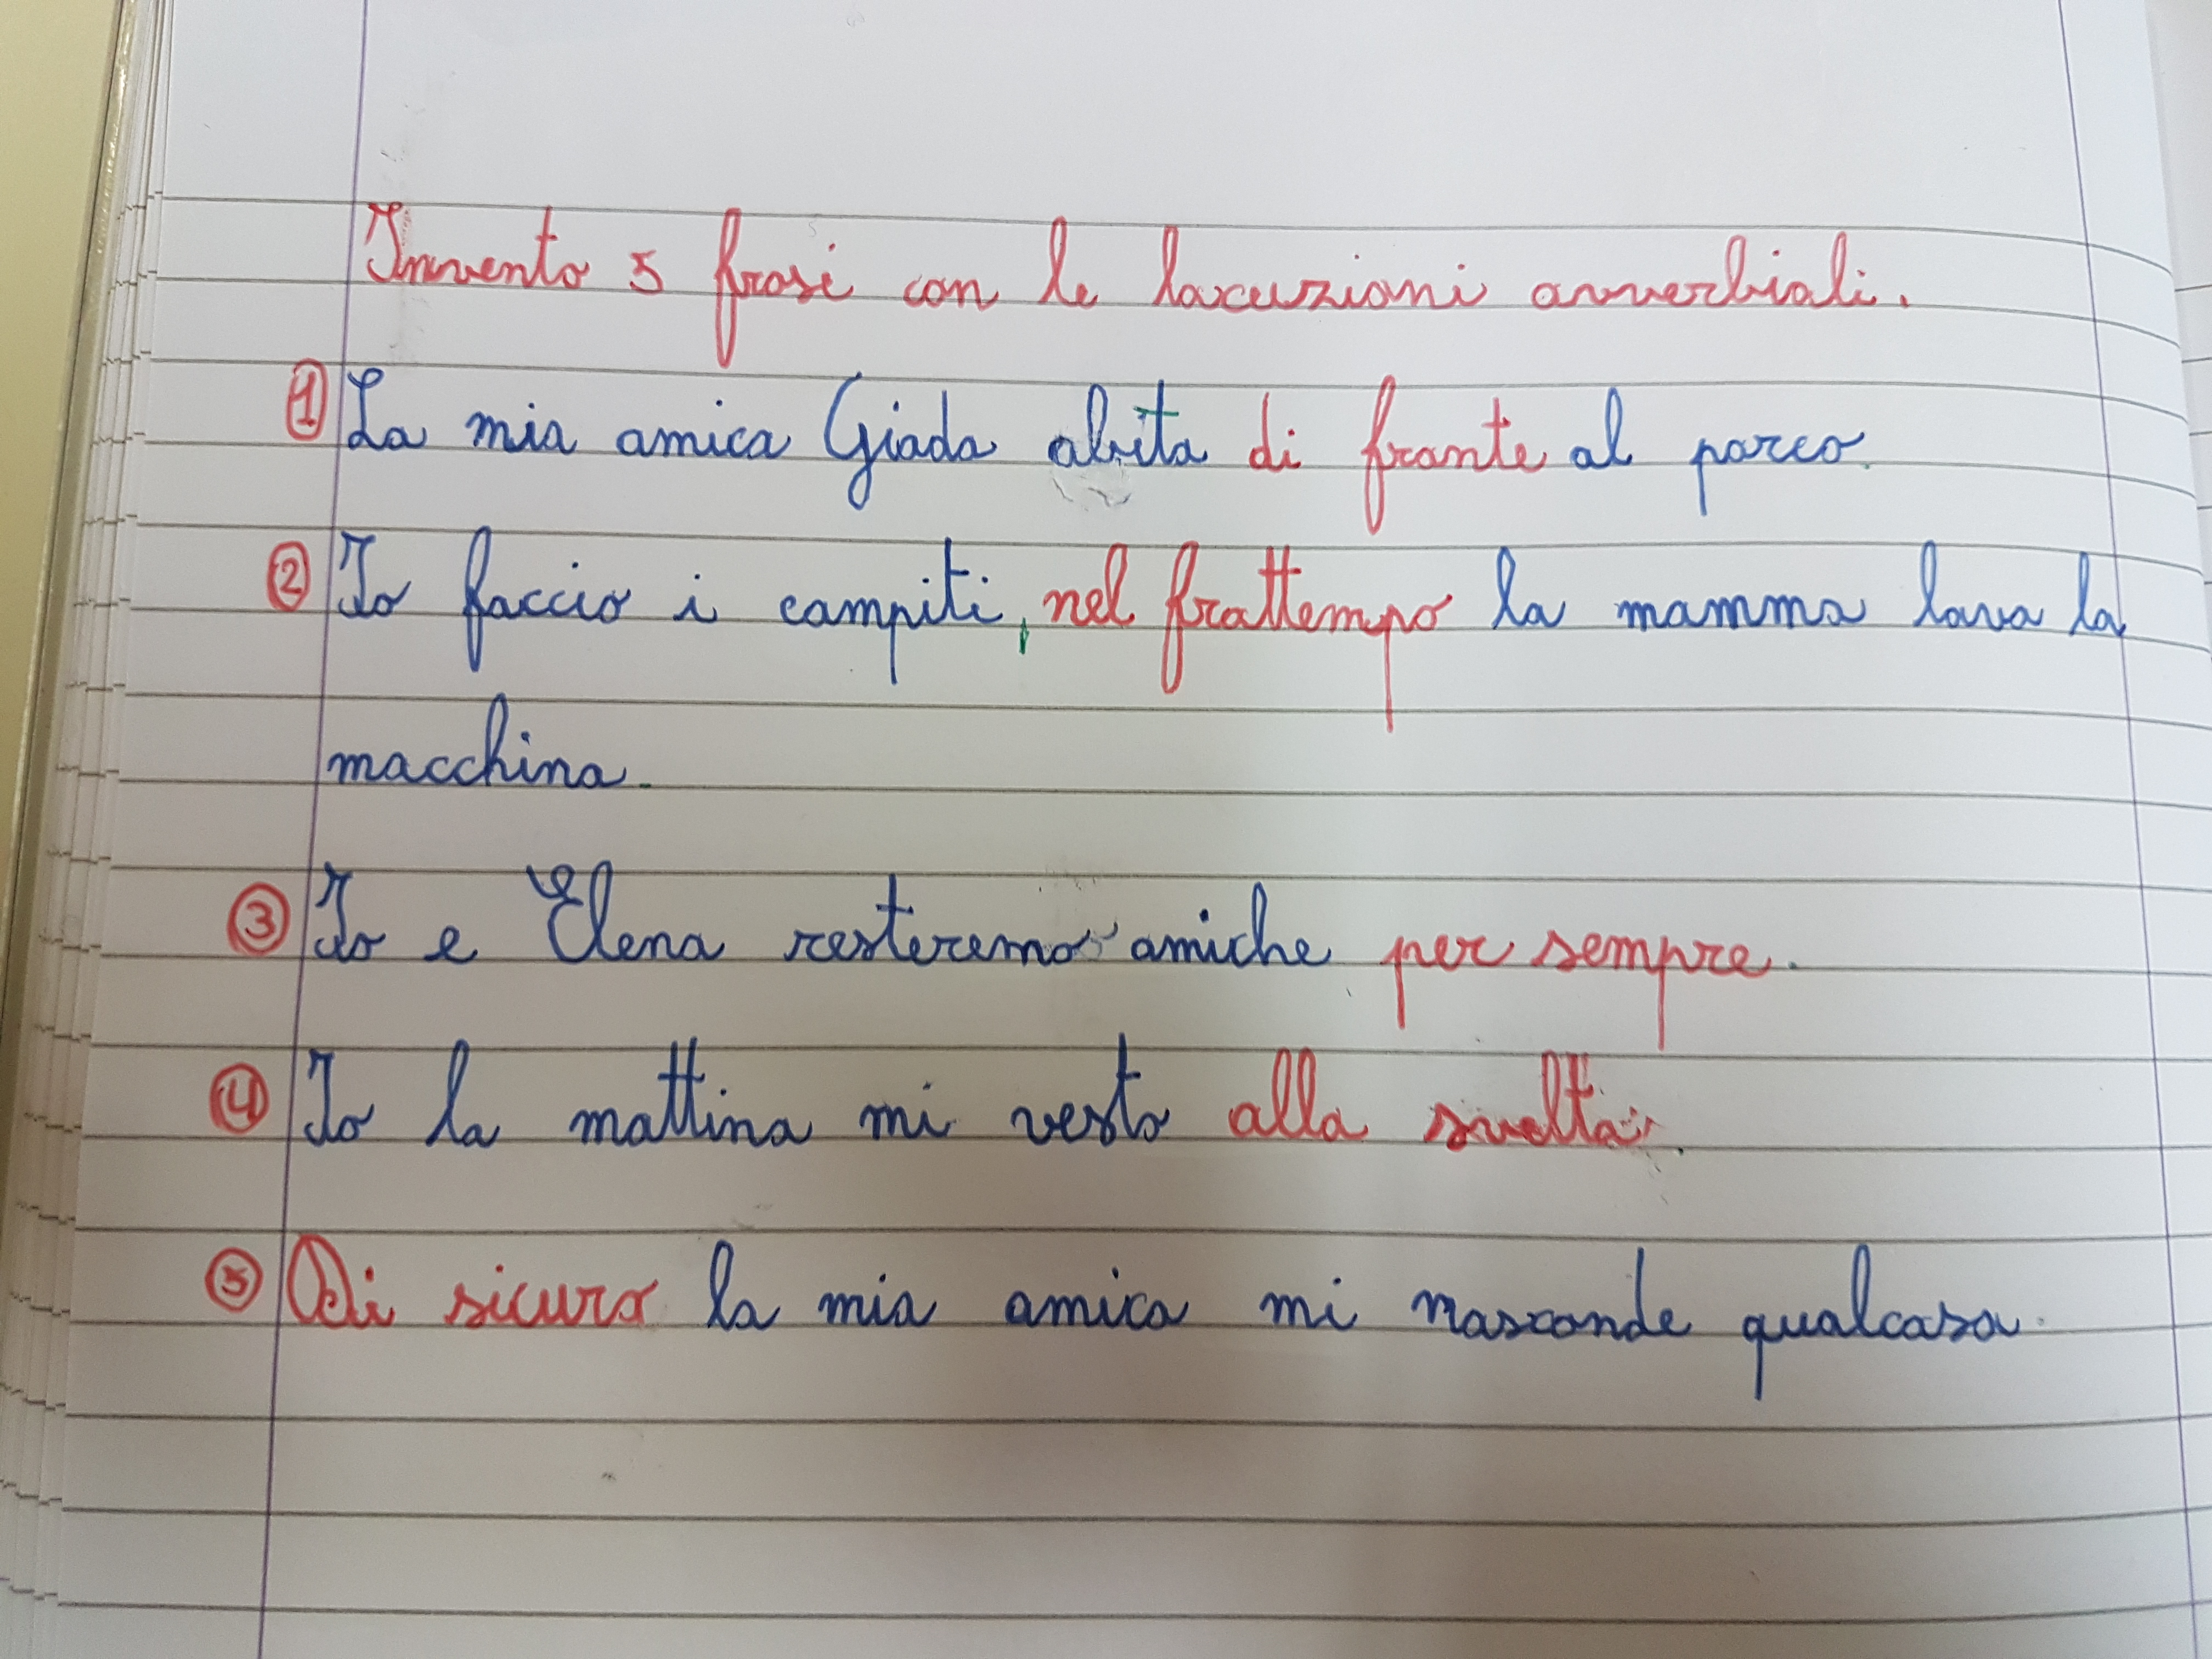 Invento 5 frasi con le locuzioni avverbiali.
1 La mia amica Giada abita di fronte al parco.
2 Io faccio i compiti, nel frattempo la mamma lava la
macchina.
3 Io e Elena resteremo amiche per sempre.
4 Io la mattina mi vesto alla svelta.
5 Di sicuro la mia amica mi nasconde qualcosa.